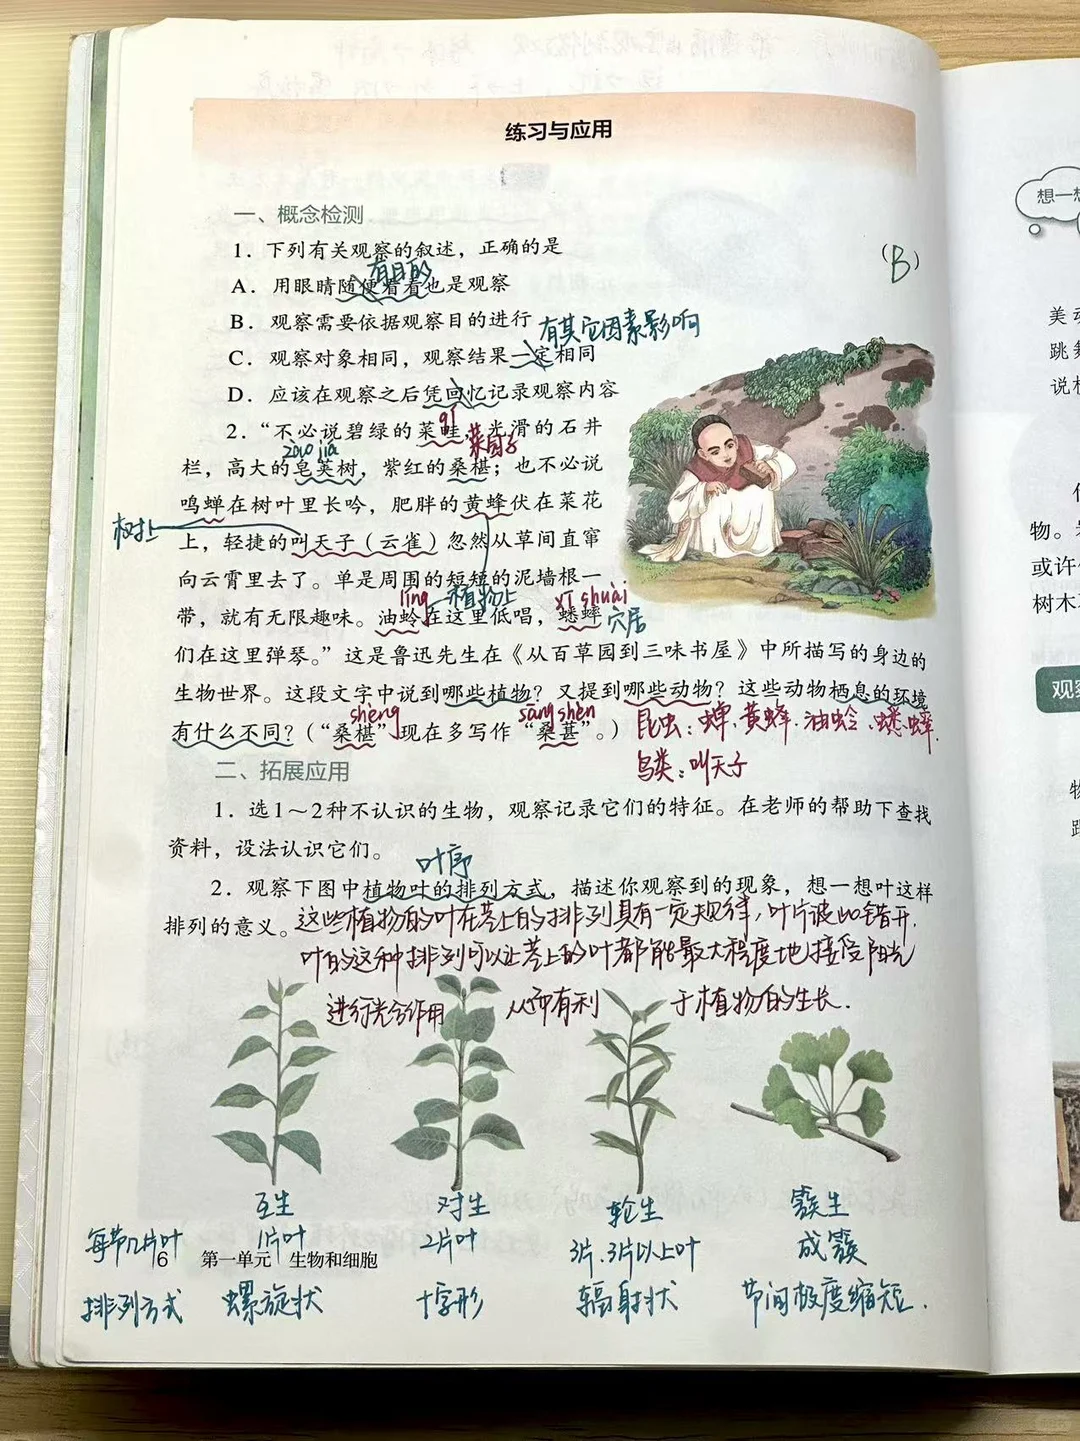 练习与应用
一、概念检测
1．下列有关观察的叙述，正确的是
（B）
有目的
A．用眼睛随便看看也是观察
B．观察需要依据观察目的进行
有其它因素影响
C．观察对象相同，观察结果一定相同
D．应该在观察之后凭回忆记录观察内容
qí
2．“不必说碧绿的菜畦，光滑的石井
zào jiá
菜园子
栏，高大的皂荚树，紫红的桑椹；也不必说
鸣蝉在树叶里长吟，肥胖的黄蜂伏在菜花
树上
上，轻捷的叫天子（云雀）忽然从草间直窜
向云霄里去了。单是周围的短短的泥墙根一
líng
植物上
xī shuài
带，就有无限趣味。油蛉在这里低唱，蟋蟀
穴居
们在这里弹琴。”这是鲁迅先生在《从百草园到三味书屋》中所描写的身边的
生物世界。这段文字中说到哪些植物？又提到哪些动物？这些动物栖息的环境
shèng
sāng shèn
有什么不同？（“桑椹”现在多写作“桑葚”。）
昆虫：蝉、黄蜂、油蛉、蟋蟀.
鸟类：叫天子
二、拓展应用
1．选1～2种不认识的生物，观察记录它们的特征。在老师的帮助下查找
资料，设法认识它们。
叶序
2．观察下图中植物叶的排列方式，描述你观察到的现象，想一想叶这样
排列的意义。
这些植物的叶在茎上的排列具有一定规律，叶片彼此错开.
叶的这种排列可以让茎上的叶都能最大程度地接受阳光
进行光合作用 从而有利于植物的生长.
互生 对生 轮生 簇生
每节几片叶 1片叶 2片叶 3片、3片以上叶 成簇
6 第一单元 生物和细胞
排列方式 螺旋状 十字形 辐射状 节间极度缩短.
想一想
美动
跳舞
说林
物。
或许
树木
观察
物